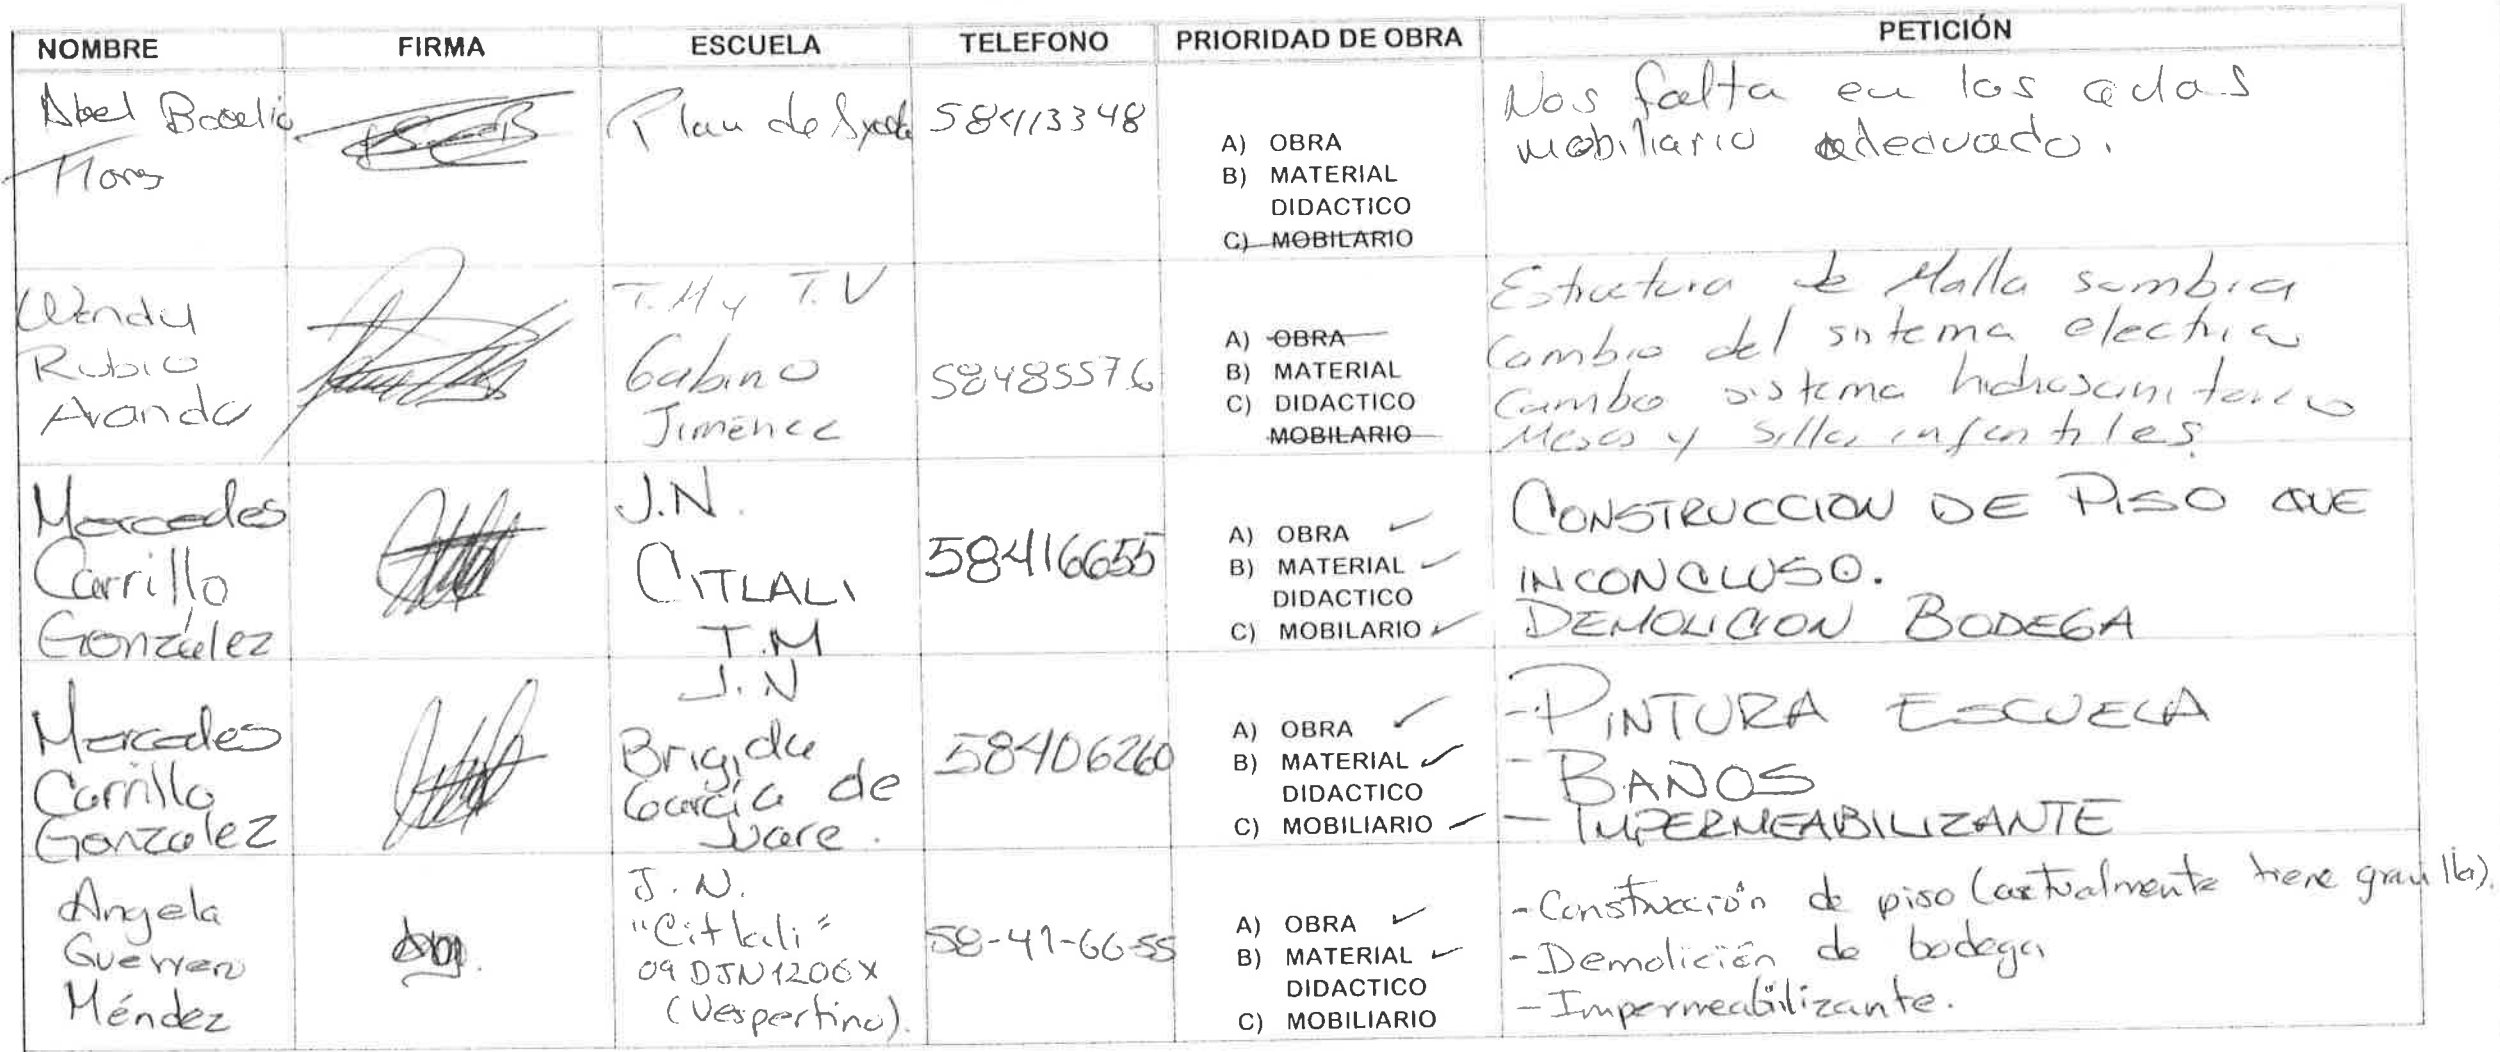 NOMBRE FIRMA ESCUELA TELEFONO PRIORIDAD DE OBRA PETICIÓN
Abel Basilio
Flores
Plan de Ayala
58413348
A) OBRA
B) MATERIAL
DIDACTICO
C) MOBILARIO
Nos falta en las aulas
mobiliario adecuado.
Wendy
Rubio
Aranda
T.M y T.V
Gabino
Jimenez
58485576
A) OBRA
B) MATERIAL
C) DIDACTICO
MOBILARIO
Estructura de Malla sombra
Cambio del sistema electrico
Cambio sistema hidrosanitario
Mesas y Sillas infantiles
Mercedes
Carrillo
González
J.N.
CITLALI
T.M
58416655
A) OBRA ✓
B) MATERIAL ✓
DIDACTICO
C) MOBILARIO ✓
CONSTRUCCION DE PISO QUE
INCONCLUSO.
DEMOLICION BODEGA
Mercedes
Carrillo
Gonzalez
J.N
Brigida
Garcia de
Juare.
58406260
A) OBRA ✓
B) MATERIAL ✓
DIDACTICO
C) MOBILIARIO ✓
-PINTURA ESCUELA
- BAÑOS
- IMPERMEABILIZANTE
Angela
Guerrero
Méndez
J.N.
"Citlali"
09DJN1206X
(Vespertino).
58-41-66-55
A) OBRA ✓
B) MATERIAL ✓
DIDACTICO
C) MOBILIARIO
-Construcción de piso (actualmente tiene gravilla).
-Demolición de bodega
-Impermeabilizante.